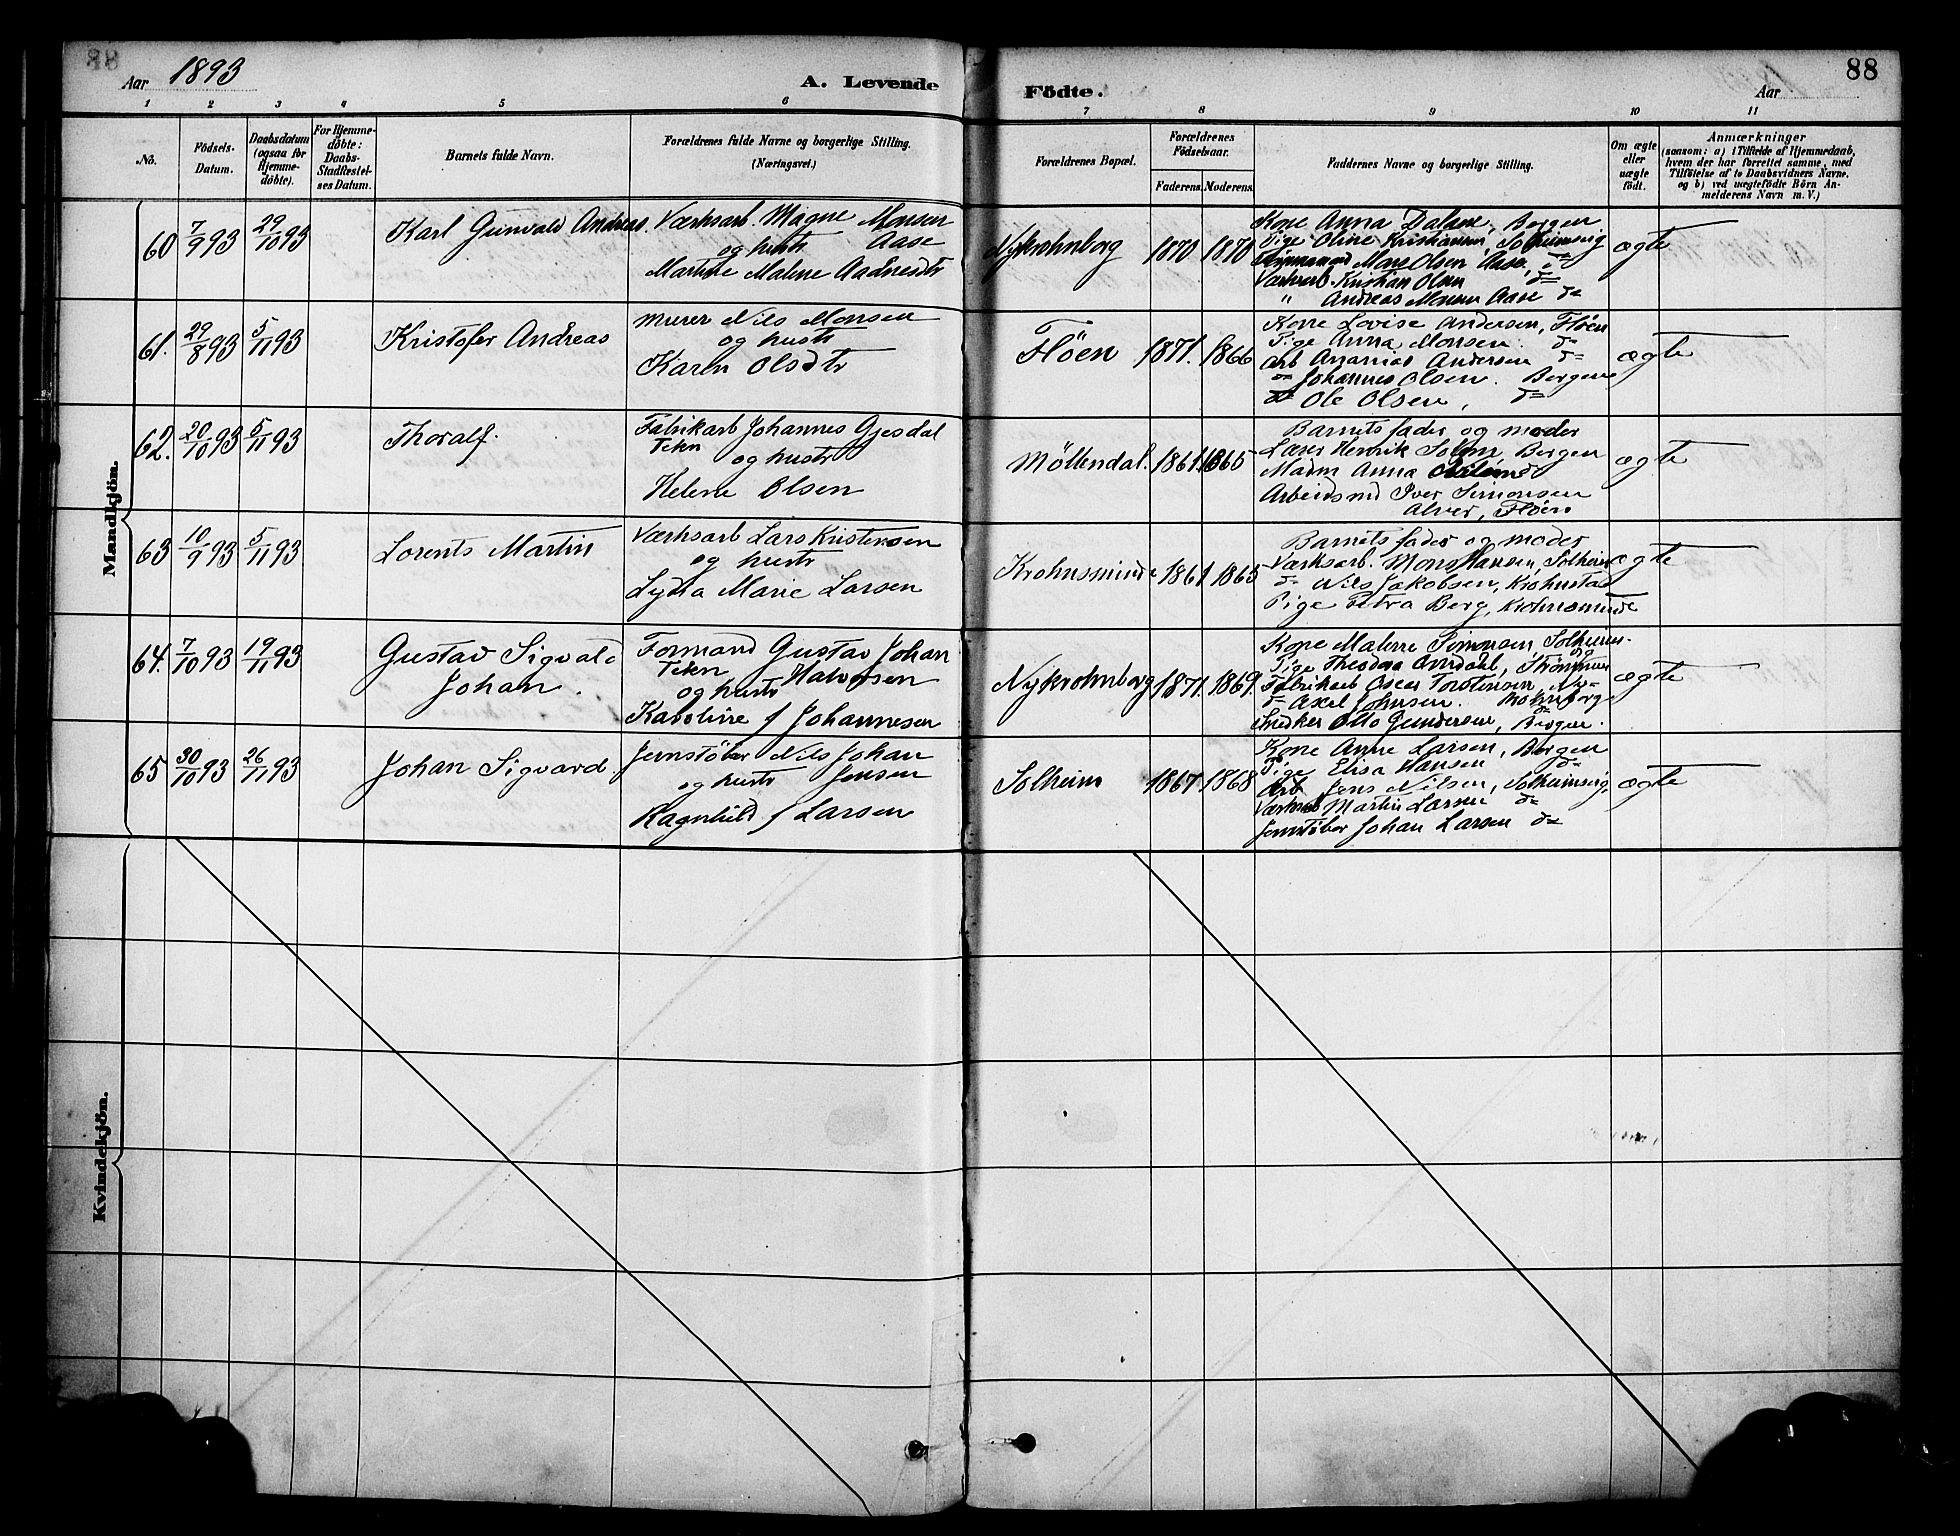 88
Aar 1893
A. Levende
Födte.
Aar
88
1 2 3 4 5 6 7 8 9 10 11
No.
Födsels-
Datum.
Daabsdatum
(ogsaa for
Hjemme-
döbte).
For Hjemme-
döbte:
Daabs-
Stadfæstel-
ses Datum.
Barnets fulde Navn.
Forældrenes fulde Navne og borgerlige Stilling.
(Næringsvei.)
Forældrenes Bopæl.
Forældrenes
Födselsaar.
Faderens.
Moderens.
Faddernes Navne og borgerlige Stilling.
Om ægte
eller
uægte
födt.
Anmærkninger
(saasom: a) i Tilfælde af Hjemmedaab,
hvem der har forrettet samme, med
Tilföielse af to Daabsvidners Navne.
og b) ved uægtefödte Börn An-
melderens Navn m. V.)
Mandkjön.
60 7/9 93 29/10 93
Karl Gunvald Andreas
Værksarb. Magne Monsen
og hustr Aase
Martine Malene Aadnesdtr
Nykrohnborg 1870 1870
Kone Anna Dalane, Bergen
Pige Oline Kristiansen, Solheimsvig
Mons Olsen Aase, d=
Værksarb. Kristian Olsen d=
" Andreas Monsen Aase d=
ægte
61. 29/8 93 5/11 93
Kristofer Andreas
Murer Nils Monsen
og hustr
Karen Olsdtr
Flöen 1871. 1866
Kone Lovise Andersen, Flöen
Pige Anna Monsen. d=
Arb Ananias Andersen d=
d= Johannes Olsen. Bergen
d= Ole Olsen, d=
ægte
62. 20/10 93 5/11 93
Thoralf.
Fabrikarb Johannes Gjesdal
Tekn og hustr
Helene Olsen
Möllendal. 1861. 1865
Barnets fader og moder
Læser Henrik Solem, Bergen
Madm Anna
Arbeidsmd Iver Simonsen
Alver, Flöen
ægte
63 10/9 93 5/11 93
Lorents Martin
Værksarb Lars Kristensen
og hustr
Lydia Marie Larsen
Krohnsminde 1861 1865
Barnets fader og moder
Værksarb. Mons Hansen, Solheim
d= Nils Jakobsen, Krohnstad
Pige Petra Berg, Krohnsminde
ægte
64. 7/10 93 19/11 93
Gustav Sigvald
Johan.
Formand Gustav Johan
Tekn Halvorsen
og hustr
Karoline f Johannesen
Nykrohnborg 1871. 1869.
Kone Malene Simonsen, Solheims-
Pige Theodora
Fabrikarb Oscar Torstensen, Ny-
d= Axel Johnsen. krohnborg
Snedker Otto Gundersen, Bergen.
ægte
65 30/10 93 26/11 93
Johan Sigvard.
Jernstöber Nils Johan
og hustr Jensen
Ragnhild f Larsen
Solheim 1867. 1868
Kone Anne Larsen, Bergen
Pige Elisa Hansen d=
Arb Jens Nilsen, Solheimsvig
Værksarb Martin Larsen d=
Jernstöber Johan Larsen d=
ægte
Kvindekjön.